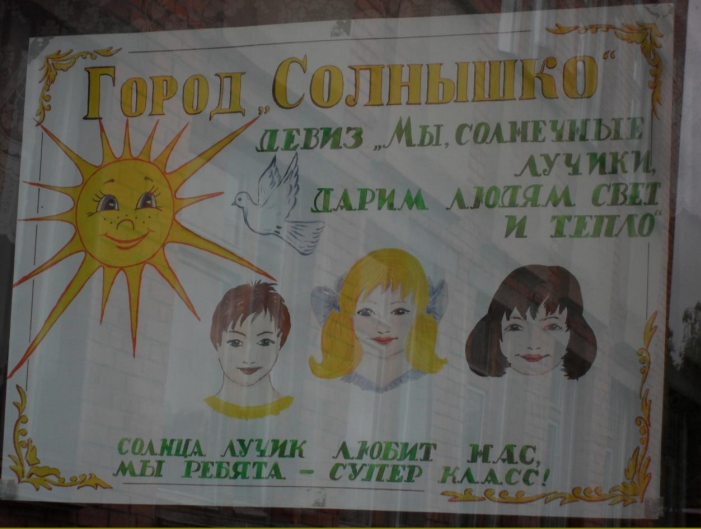 ГОРОД „СОЛНЫШКО"
ДЕВИЗ „МЫ, СОЛНЕЧНЫЕ
ЛУЧИКИ,
ДАРИМ ЛЮДЯМ СВЕТ
И ТЕПЛО"
СОЛНЦА ЛУЧИК ЛЮБИТ НАС,
МЫ РЕБЯТА – СУПЕР КЛАСС!